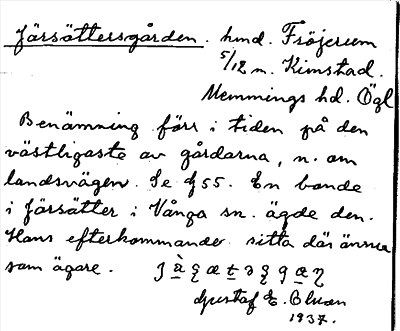 Järsättersgården. hmd. Fröjerum
5/12 m. Kimstad.
Memmings hd. Ögl
Benämning förr i tiden på den
västligaste av gårdarna, n. om
landsvägen. Se § 55. En bonde
i Järsätter i Vånga sn. ägde den.
Hans efterkommande sitta där ännu
som ägare.
Gustaf E.
1937.